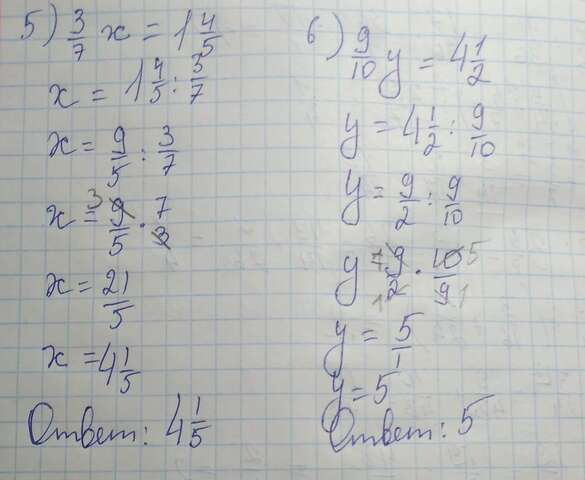 5) 3/7 x = 1 4/5
x = 1 4/5 : 3/7
x = 9/5 : 3/7
x = 3 9/5 · 7/3
x = 21/5
x = 4 1/5
Ответ: 4 1/5
6) 9/10 y = 4 1/2
y = 4 1/2 : 9/10
y = 9/2 : 9/10
y 1 9/2 1 · 10/9 5 1
y = 5/1
y = 5
Ответ: 5